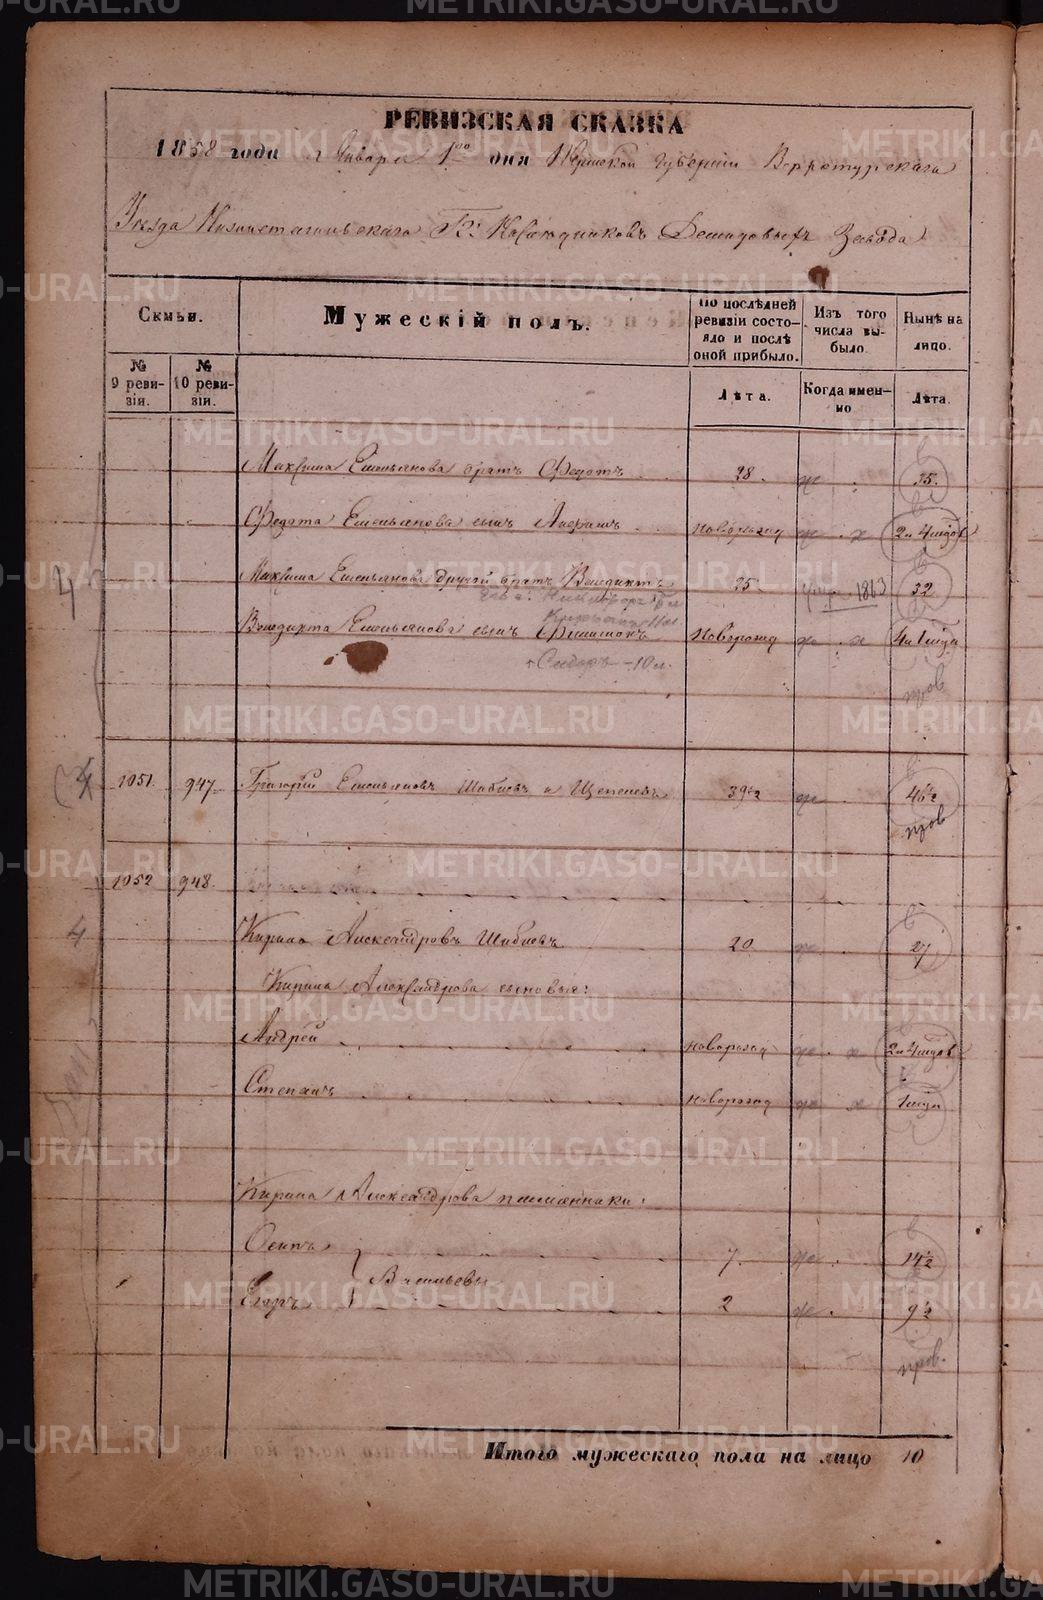 РЕВИЗСКАЯ СКАЗКА
1858 года Января 1го дня Пермской Губернии Верхотурскаго
Уезда Нижнетагильскаго Гг. Наследниковъ Демидовыхъ Завода
Семьи.
Мужескій полъ.
По послѣдней ревизіи состояло и послѣ оной прибыло.
Изъ того числа выбыло.
Нынѣ на лицо.
№ 9 ревизіи.
№ 10 ревизіи.
Лѣта.
Когда именно
Лѣта.
Емельянова братъ Федотъ 28
Федота Емельянова сынъ новорожд 2 и 4 мцов
4
Емельянова другой братъ Венедиктъ 25 1863 32
Венедикта Емельянова сынъ новорожд 4 и 1 мца
Сидоръ - 10 м.
пров
4 1051. 947. Григорій Емельяновъ 39½ 46½
пров
1052 948.
4 Кирила Александровъ 20 27
Кирила Александрова сыновья:
Андрей новорожд 2 и 4 мцов
Степанъ новорожд 1 мца
Кирила Александрова племянники:
Осипъ 7. 14½
Васильевы
Егоръ 2 9½
пров.
Итого мужескаго пола на лицо 10
METRIKI.GASO-URAL.RU